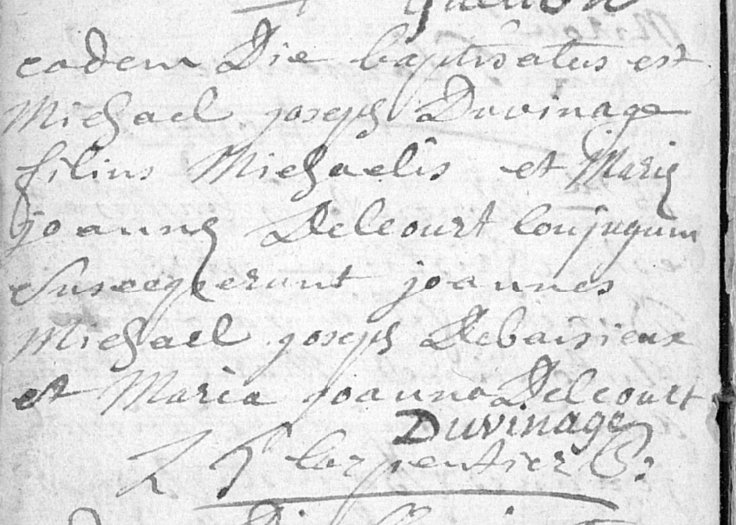 eadem Die baptisatus est
Michael joseph Duvinage
filius Michaelis et Marię
joannę Delcourt Conjugum
Susceperunt joannes
Michael joseph Debaisieux
et Maria joanna Delcourt
Duvinage
Carpentier